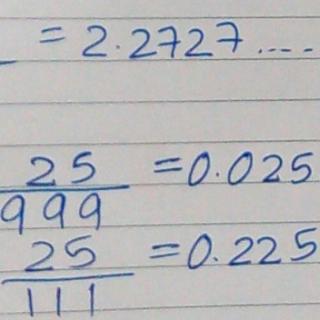 = 2.2727....
25/999 = 0.025
25/111 = 0.225